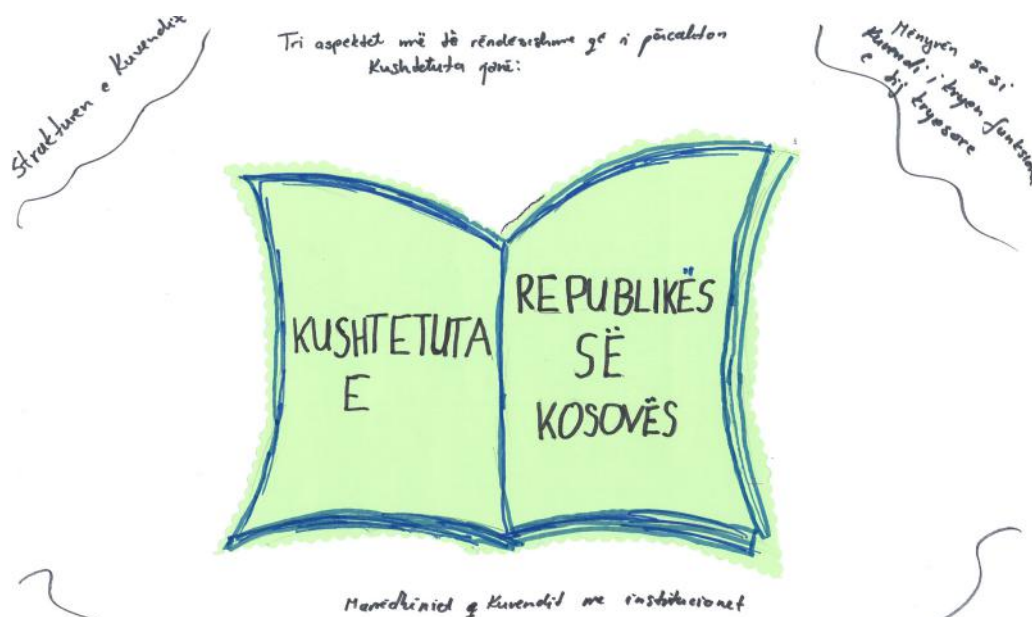 Strukturën e Kuvendit
Tri aspektet më të rëndësishme që i përcakton
Kushtetuta janë:
Mënyrën se si
Kuvendi i kryen funksionet
e tij kryesore
KUSHTETUTA
E
REPUBLIKËS
SË
KOSOVËS
Marrëdhëniet e Kuvendit me institucionet